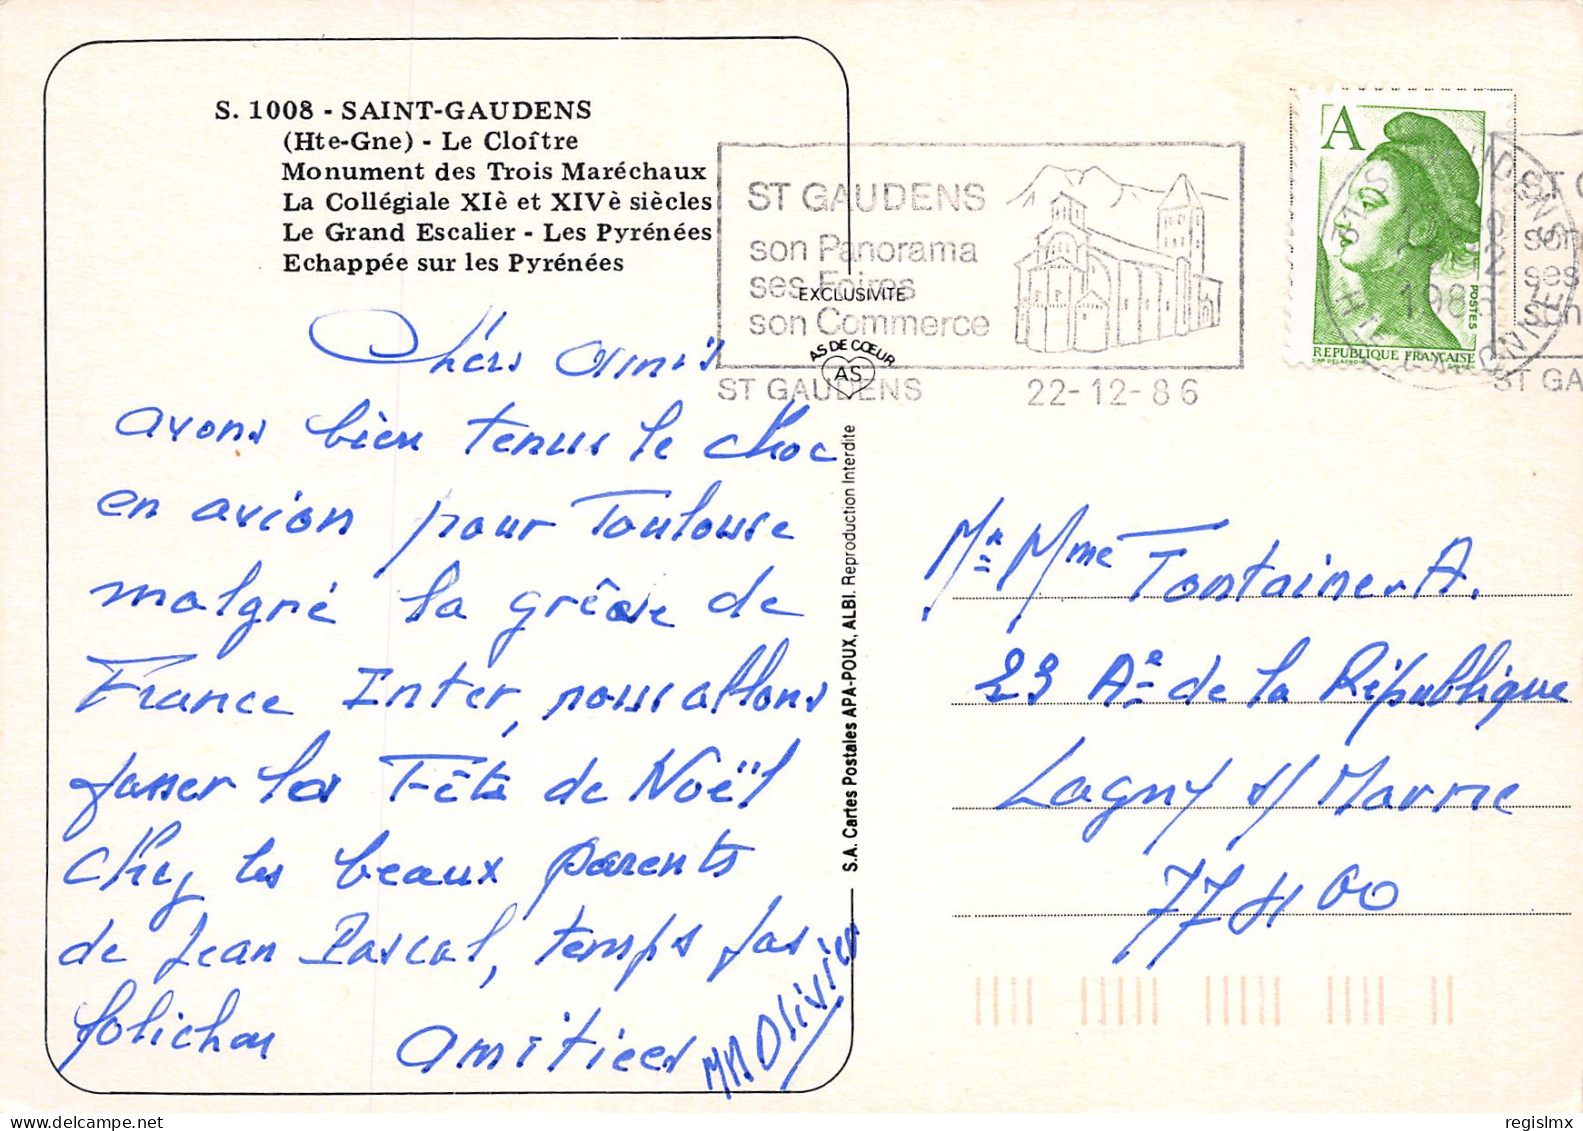 S. 1008 - SAINT-GAUDENS
(Hte-Gne) - Le Cloître
Monument des Trois Maréchaux
La Collégiale XIè et XIVè siècles
Le Grand Escalier - Les Pyrénées
Echappée sur les Pyrénées
Chers Amis
avons bien tenus le choc
en avion pour Toulouse
malgré la grêve de
France Inter, nous allons
passer les Fêtes de Noël
chez les beaux parents
de Jean Pascal, temps pas
folichon Amitiées
Olivier
EXCLUSIVITE
AS DE CŒUR
AS
S.A. Cartes Postales APA-POUX, ALBI. Reproduction Interdite
ST GAUDENS
son Panorama
ses Foires
son Commerce
ST GAUDENS 22-12-86
A
POSTES
REPUBLIQUE FRANÇAISE
1986
ST G
son
ses
son
ST GA
Mr Mme Fontaine. A.
23 Ae de la République
Lagny s/ Marne
77400
regislmx